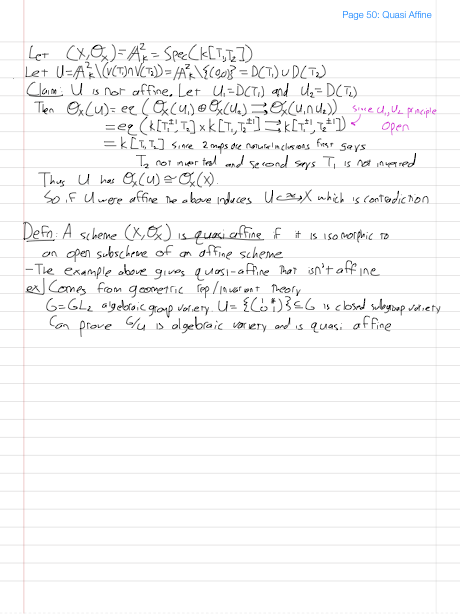 Page 50: Quasi Affine
Let (X, O_X) = A²_k = Spec(k[T₁,T₂])
Let U = A²_k \ (V(T₁)∩V(T₂)) = A²_k \ {(0,0)} = D(T₁) ∪ D(T₂)
Claim: U is not affine. Let U₁ = D(T₁) and U₂ = D(T₂)
Then O_X(U) = eq (O_X(U₁) ⊕ O_X(U₂) ⇉ O_X(U₁∩U₂)) since U₁, U₂ principle
= eq (k[T₁^{±1}, T₂] × k[T₁, T₂^{±1}] ⇉ k[T₁^{±1}, T₂^{±1}]) open
= k[T₁,T₂] since 2 maps are natural inclusions first says
T₂ not inverted and second says T₁ is not inverted
Thus U has O_X(U) ≅ O_X(X).
So if U were affine the above induces U ≅ X which is contradiction
Defn: A scheme (X, O_X) is quasi affine if it is isomorphic to
an open subscheme of an affine scheme
- The example above gives quasi-affine that isn't affine
ex] Comes from geometric rep/invariant theory
G = GL₂ algebraic group variety U = {(1 * 0 1)} ⊆ G is closed subgroup variety
Can prove G/U is algebraic variety and is quasi affine